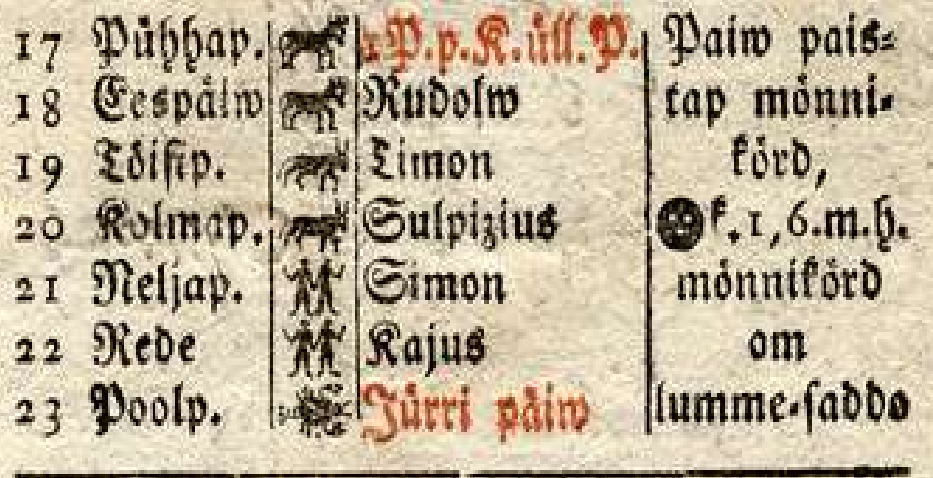 17 Pühhap. 1 P.p.K.üll.P. Paiw pais⸗
18 Eespäiw Rudolw tap mönni⸗
19 Töisip. Timon körd,
20 Kolmap. Sulpizius k.1,6.m.h.
21 Neljap. Simon mönnikörd
22 Rede Kajus om
23 Poolp. Jürri päiw lumme⸗saddo